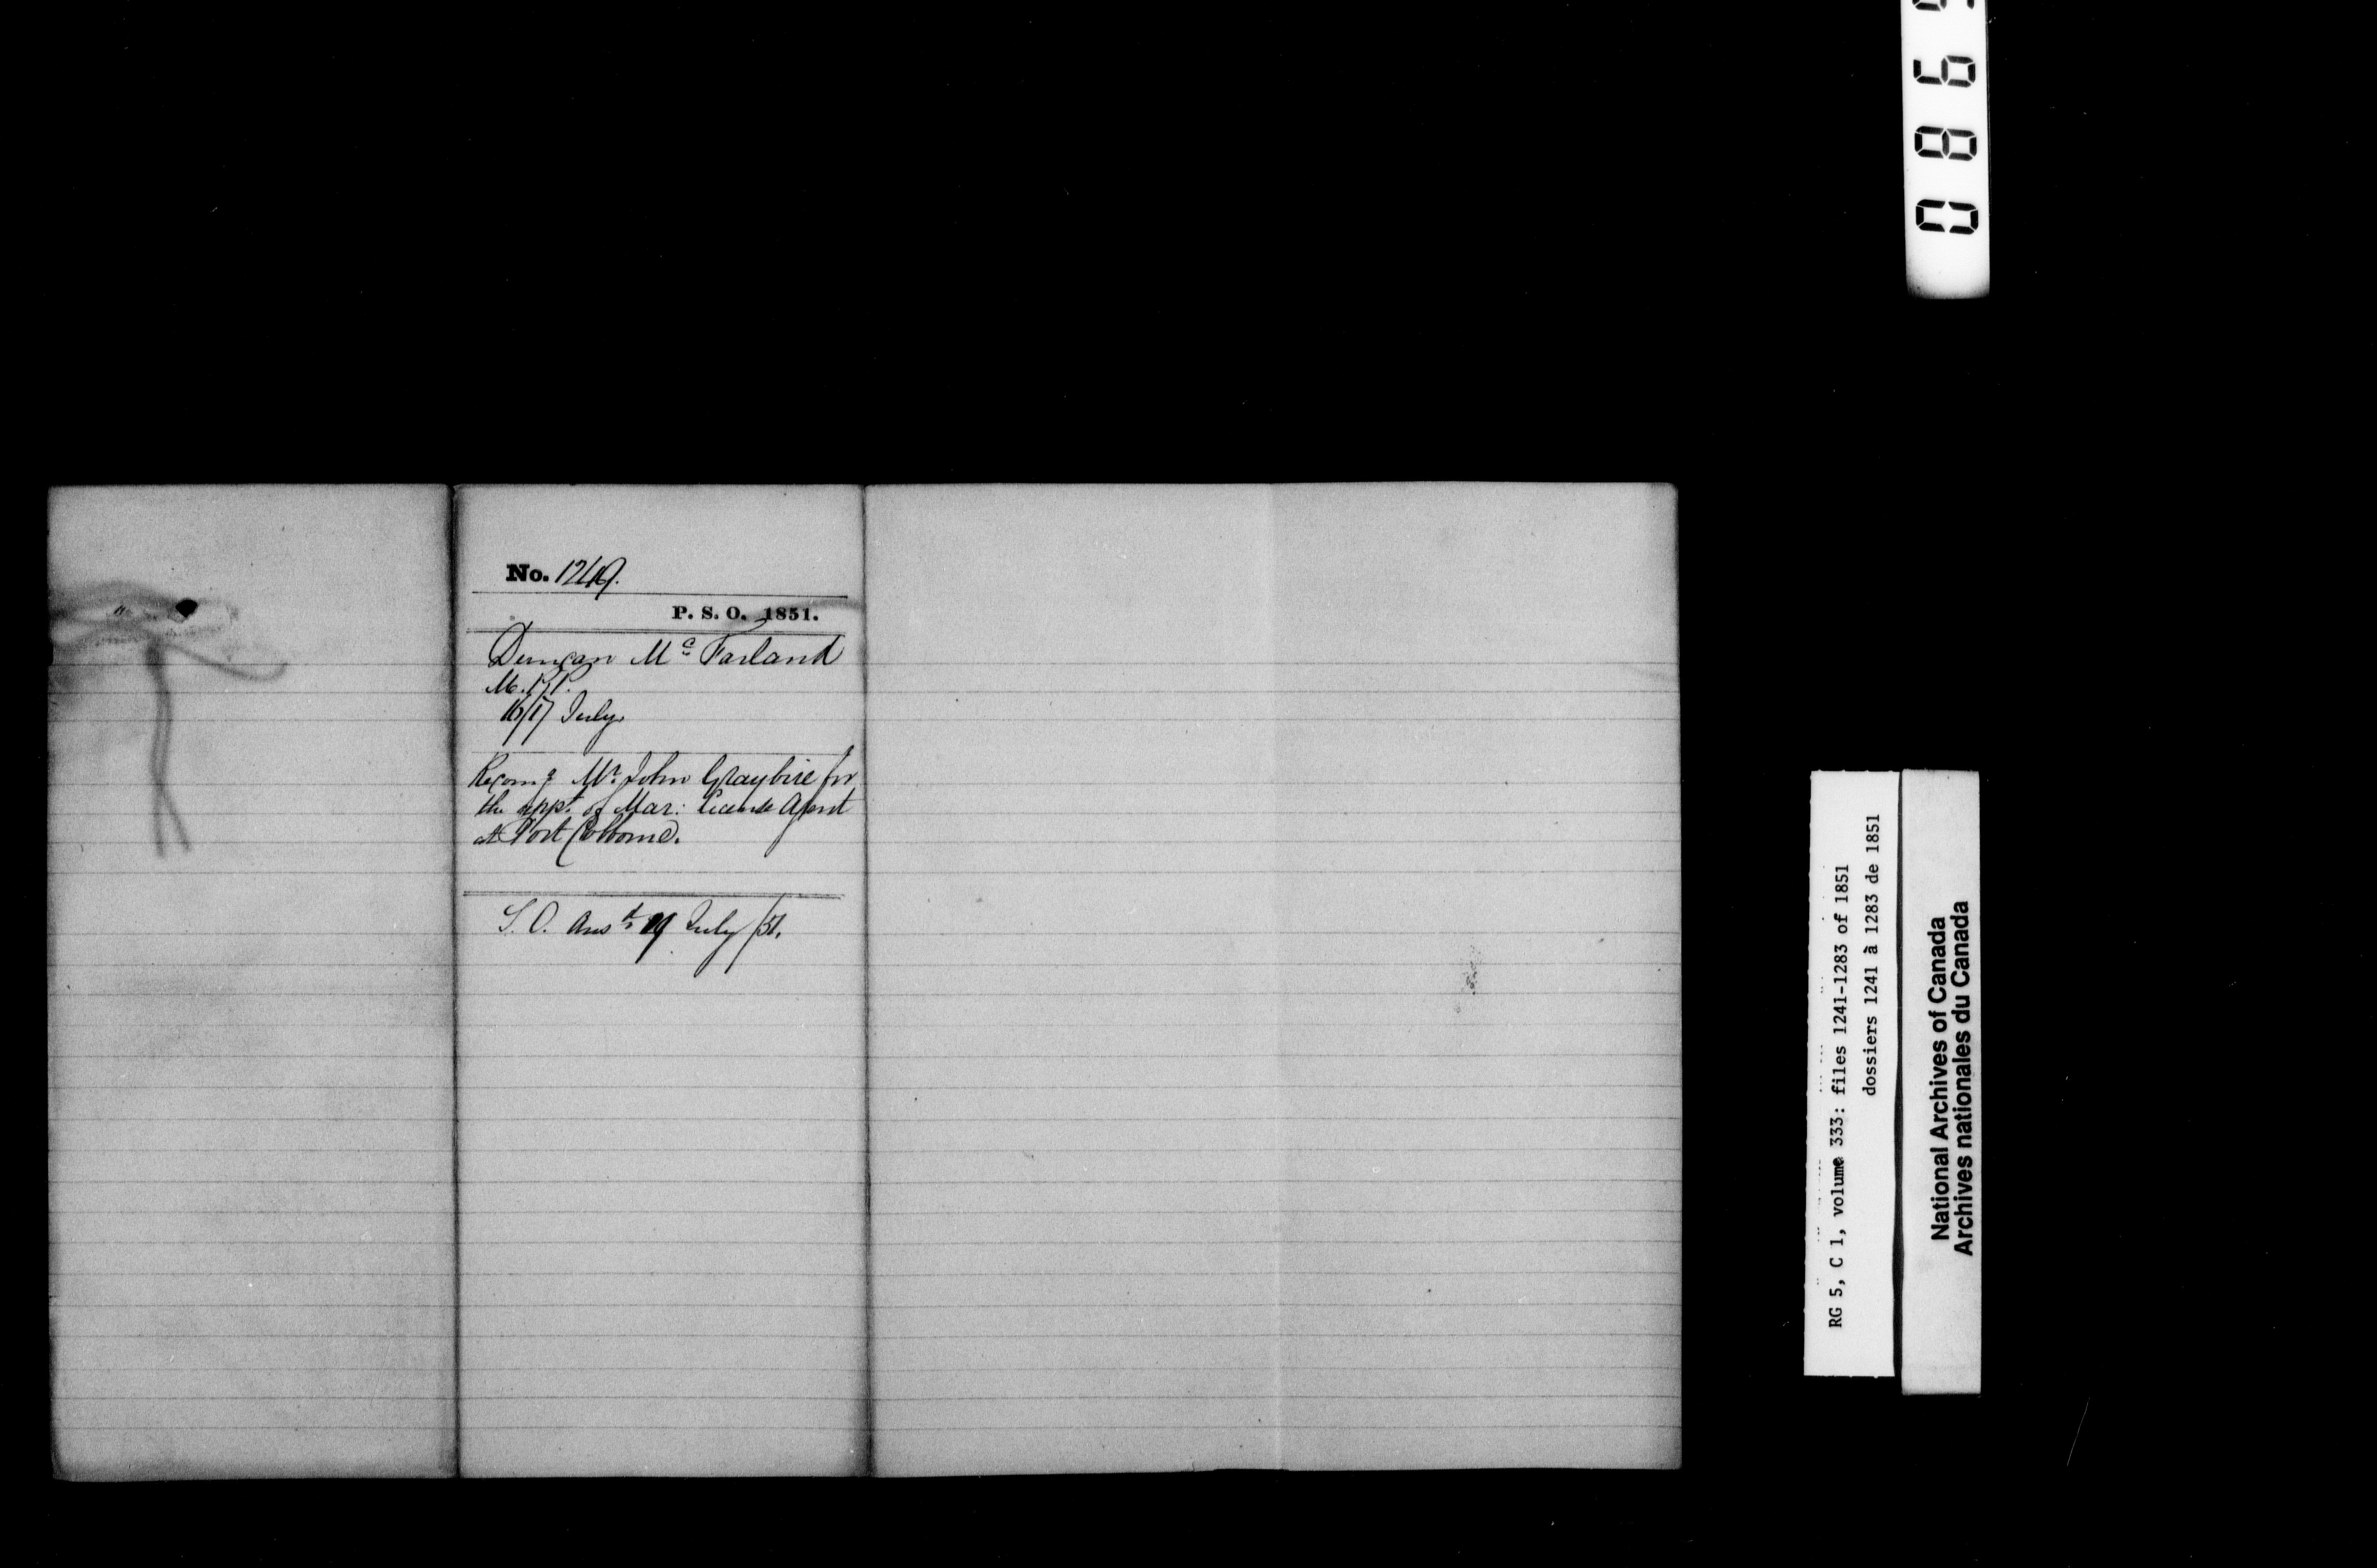 No. 1249.
P. S. O. 1851.
Duncan Mc Farland
M.P.P.
16/17 July
Recomg Mr. John Graybiel for
the appt. of Mar: License Agent
at Port Colborne.
S. O. Ansd 19 July /51.
RG 5, C 1, volume 333: files 1241-1283 of 1851
dossiers 1241 à 1283 de 1851
National Archives of Canada
Archives nationales du Canada
0 8 6